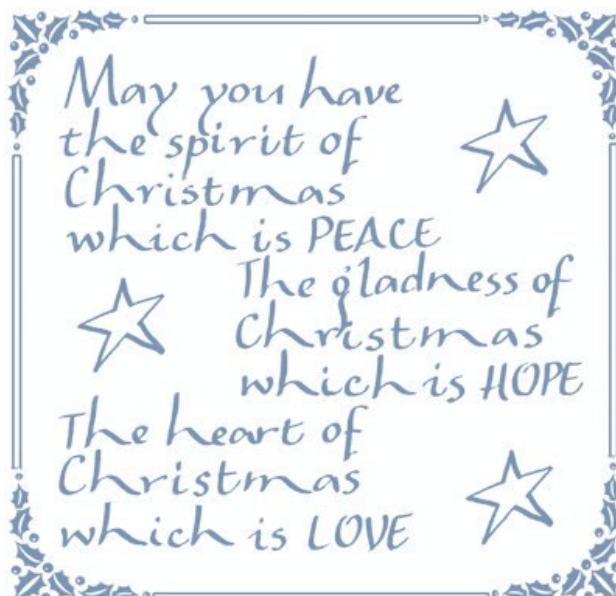 May you have
the spirit of
Christmas
which is PEACE
The gladness of
Christmas
which is HOPE
The heart of
Christmas
which is LOVE